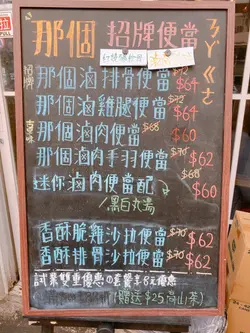 那個 招牌便當 ㄋㄚˋ ㄍㄜ˙
招牌 那個滷排骨便當 $72 $64
那個滷雞腿便當 $72 $64
那個滷肉便當 $68 $60
那個滷肉手羽便當 $70 $62
迷你滷肉便當配 $68 $60
/黑白丸湯
香酥脆雞沙拉便當 $70 $62
香酥排骨沙拉便當 $70 $62
試業雙重優惠
(贈送$25高山茶)